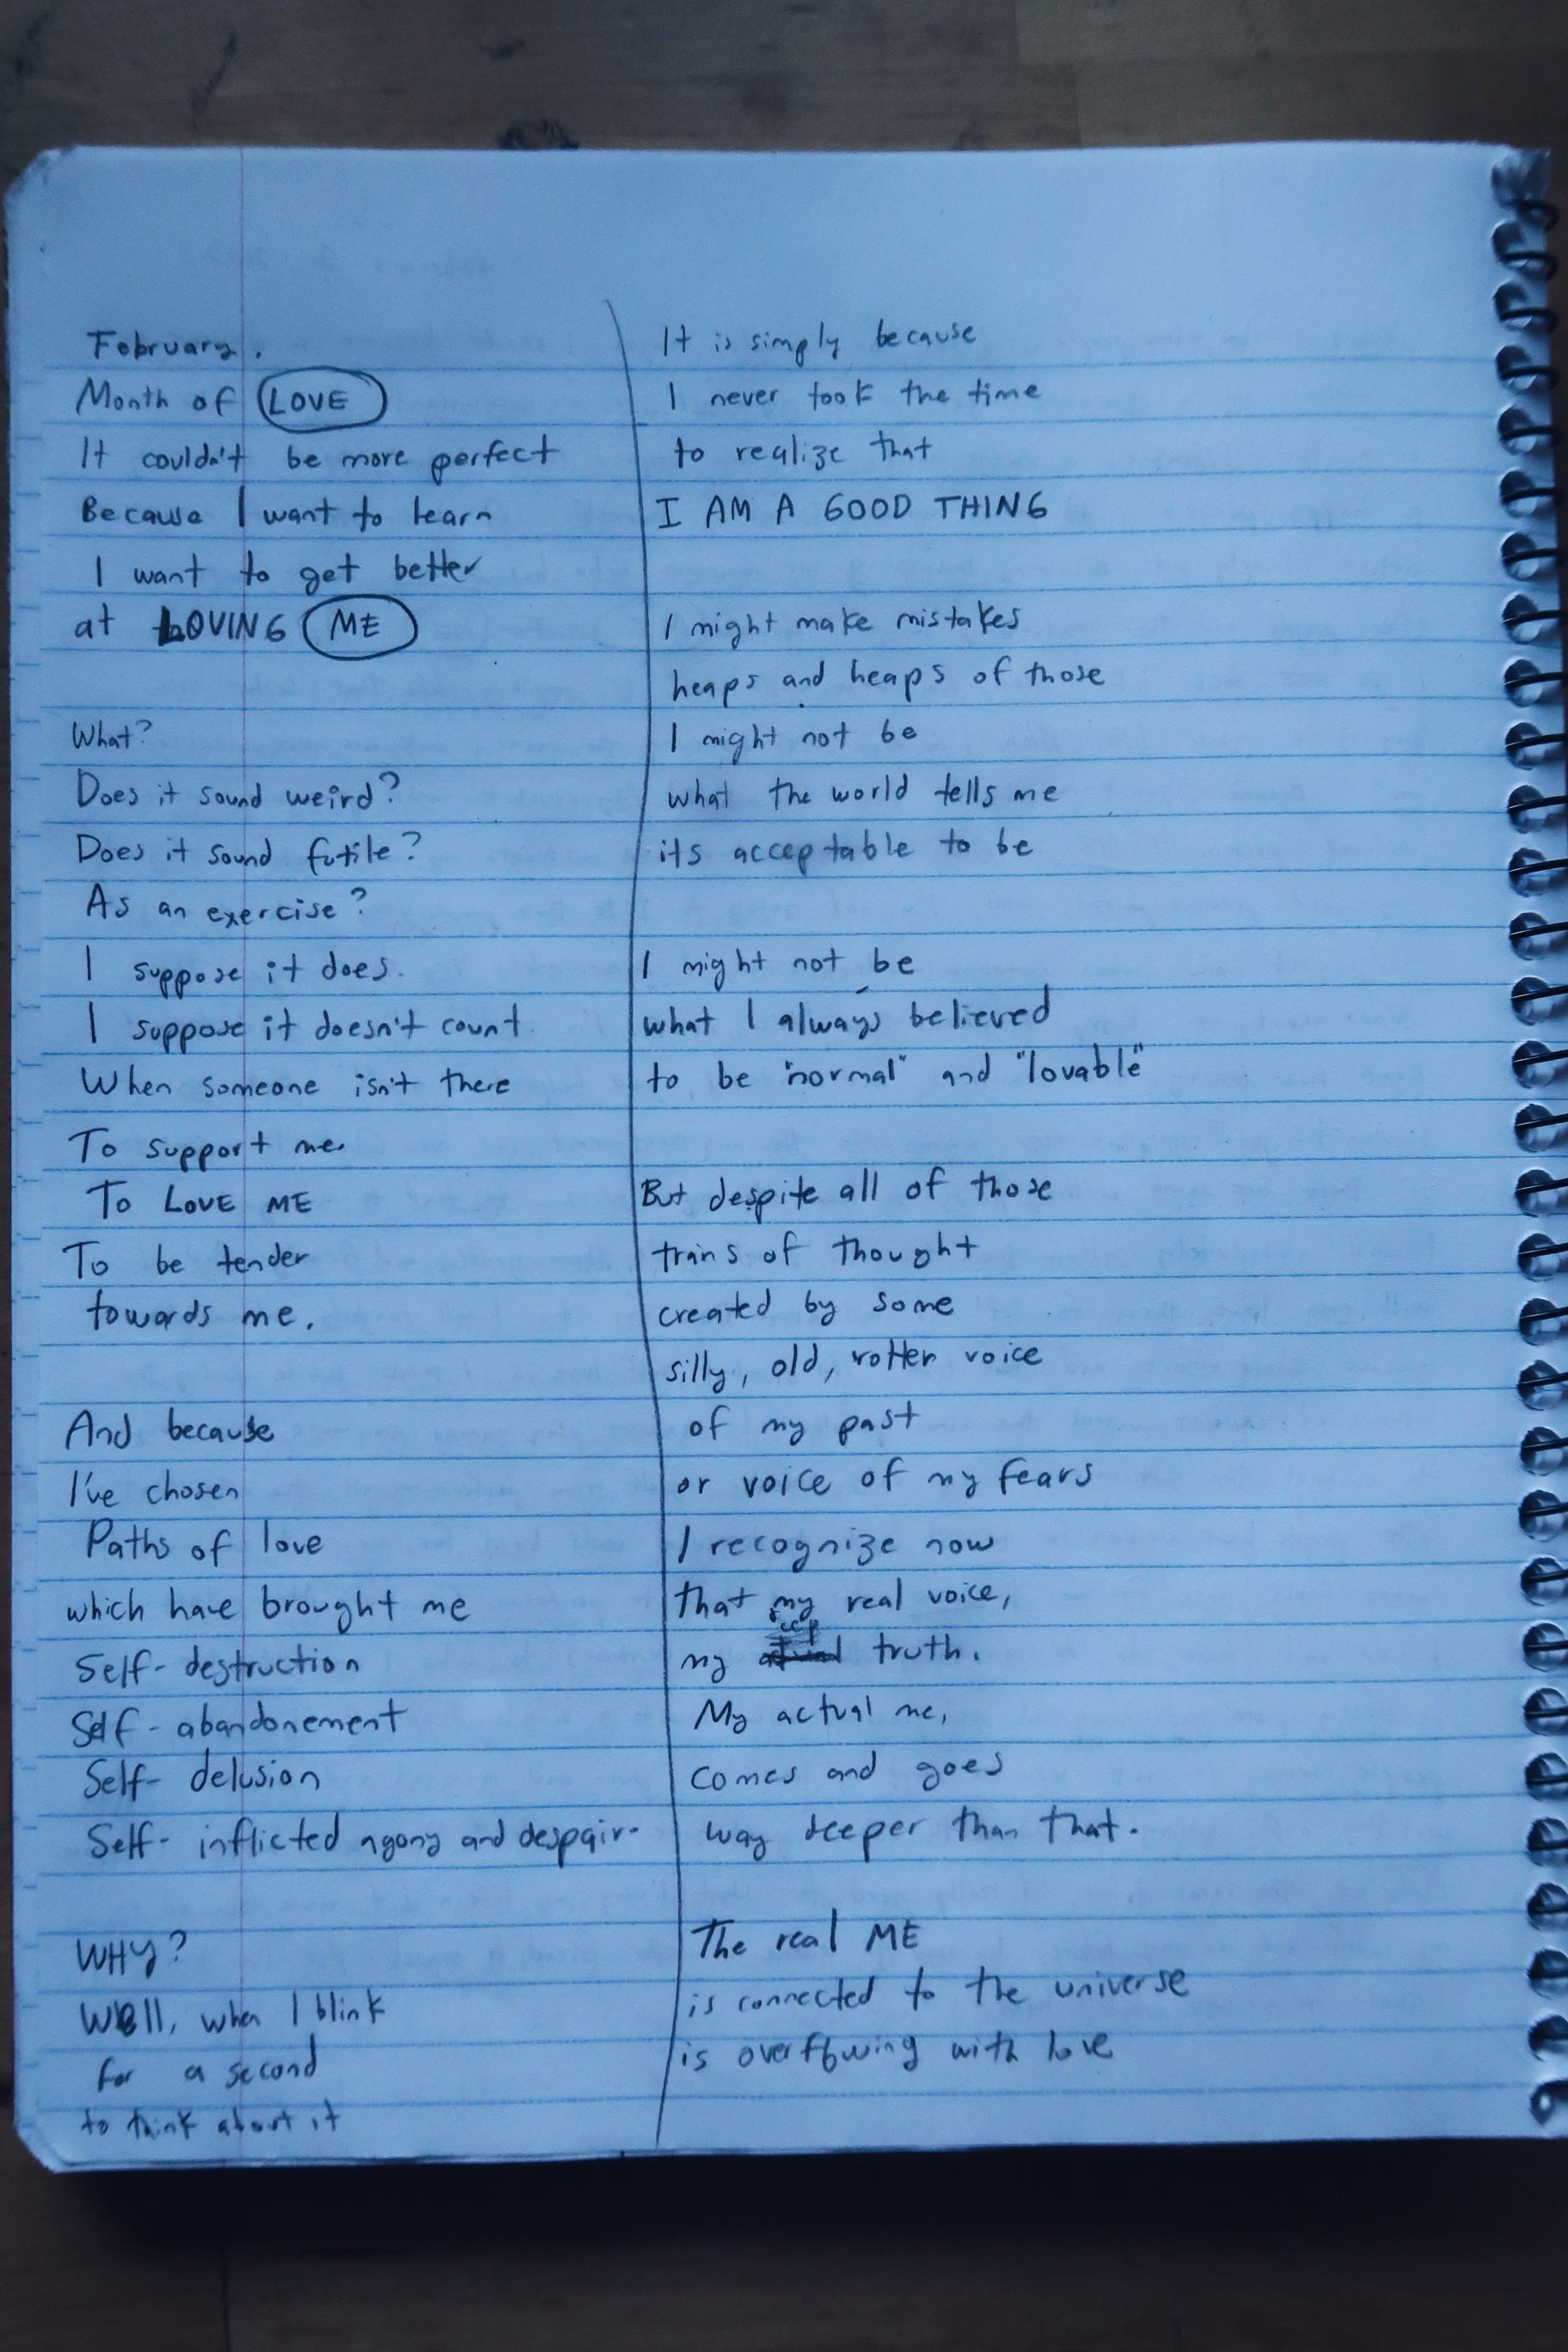 February.
Month of LOVE
It couldn't be more perfect
Because I want to learn
I want to get better
at LOVING ME
What?
Does it sound weird?
Does it sound futile?
As an exercise?
I suppose it does.
I suppose it doesn't count
When someone isn't there
To support me.
To LOVE ME
To be tender
towards me.
And because
I've chosen
Paths of love
which have brought me
Self-destruction
Self-abandonement
Self-delusion
Self-inflicted agony and despair.
WHY?
Well, when I blink
for a second
to think about it
It is simply because
I never took the time
to realize that
I AM A GOOD THING
I might make mistakes
heaps and heaps of those
I might not be
what the world tells me
its acceptable to be
I might not be
what I always believed
to be "normal" and "lovable"
But despite all of those
trains of thought
created by some
silly, old, rotten voice
of my past
or voice of my fears
I recognize now
that my real voice,
my truth.
My actual me,
comes and goes
way deeper than that.
The real ME
is connected to the universe
is overflowing with love